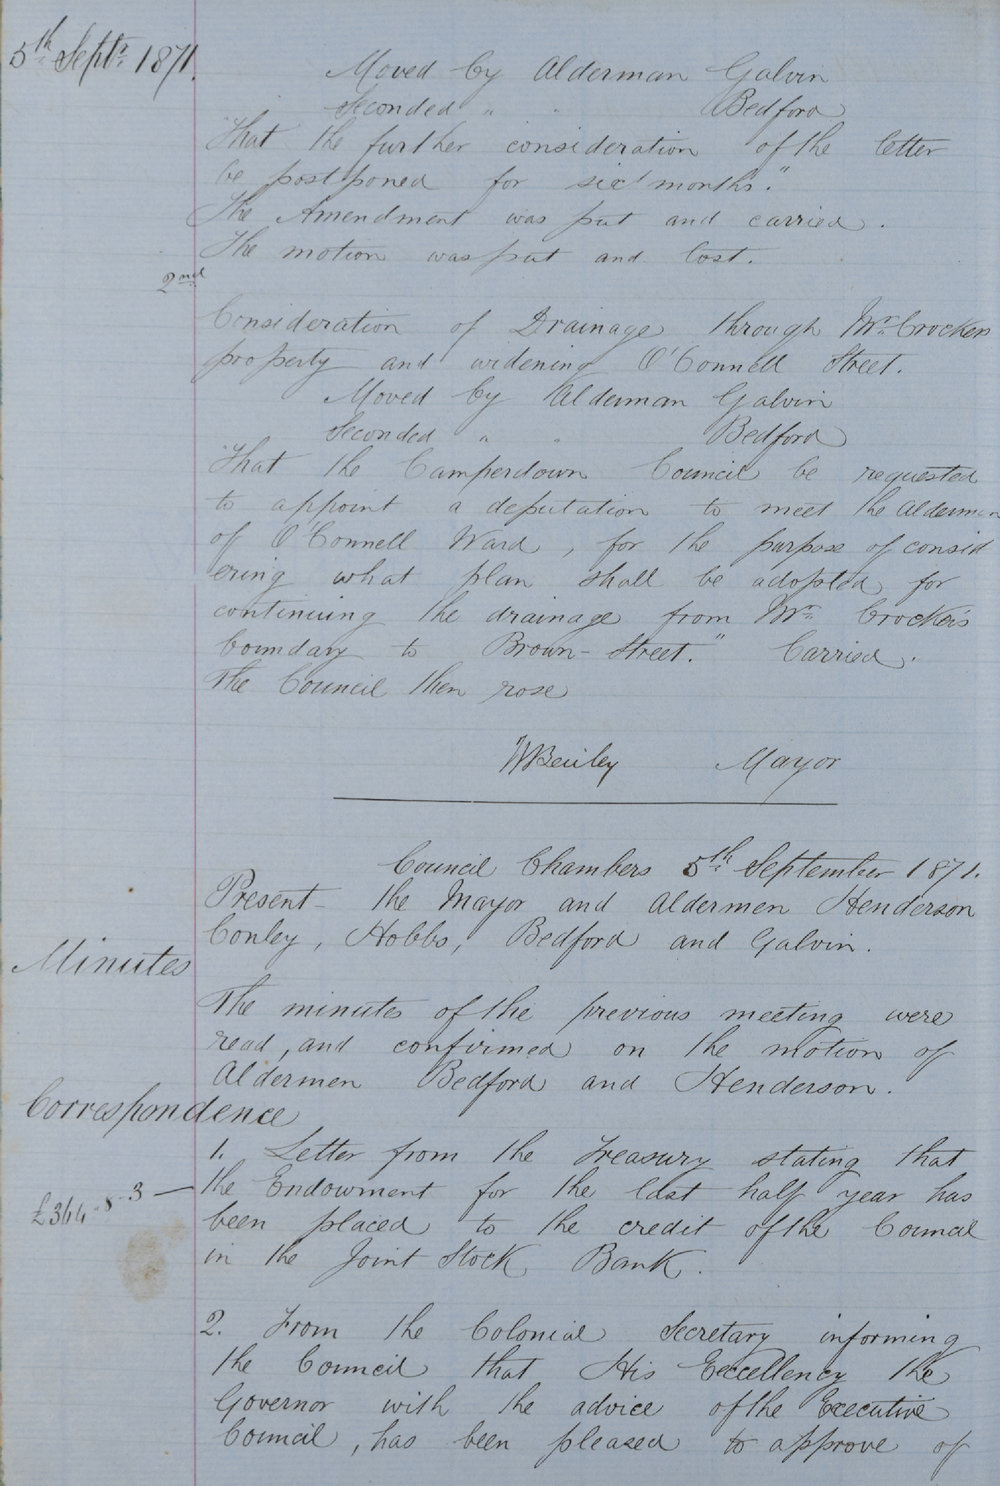 5th Septr. 1871.
Moved by Alderman Galvin
Seconded " " Bedford
"That the further consideration of the letter
be postponed for six months."
The Amendment was put and carried.
The motion was put and lost.
2nd
Consideration of Drainage through Mr. Crockers
property and widening O'Connell Street.
Moved by Alderman Galvin
Seconded " " Bedford
"That the Camperdown Council be requested
to appoint a deputation to meet the Aldermen
of O'Connell Ward, for the purpose of consid
ering what plan shall be adopted for
continuing the drainage from Mr. Crocker's
boundary to Brown-Street." Carried.
The Council then rose
Mayor
Council Chambers 5th September 1871.
Present - the Mayor and Aldermen Henderson
Conley, Hobbs, Bedford and Galvin.
Minutes
The minutes of the previous meeting were
read, and confirmed on the motion of
Aldermen Bedford and Henderson.
Correspondence
1. Letter from the Treasury stating that
£364-8-3 — the Endowment for the last half year has
been placed to the credit of the Council
in the Joint Stock Bank.
2. From the Colonial Secretary informing
the Council that His Excellency the
Governor with the advice of the Executive
Council, has been pleased to approve of